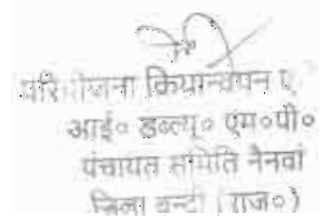 परियोजना क्रियान्वयन ए
आई० डब्ल्यू० एम०पी०
पंचायत समिति नैनवां
जिला बून्दी (राज०)